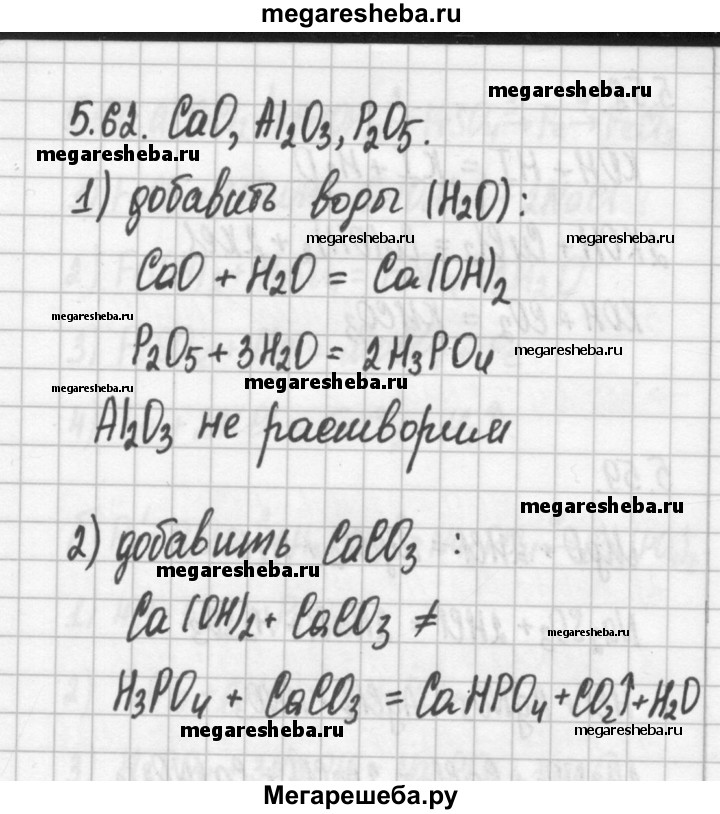 megaresheba.ru
megaresheba.ru
5.62. CaO, Al2O3, P2O5.
megaresheba.ru
1) добавить воды (H2O):
megaresheba.ru megaresheba.ru
CaO + H2O = Ca(OH)2
megaresheba.ru
P2O5 + 3H2O = 2H3PO4
megaresheba.ru
megaresheba.ru
megaresheba.ru
Al2O3 не растворим
megaresheba.ru
2) добавить CaCO3 :
megaresheba.ru
Ca(OH)2 + CaCO3 ≠
megaresheba.ru
H3PO4 + CaCO3 = CaHPO4 + CO2↑ + H2O
megaresheba.ru
megaresheba.ru
Мегарешеба.ру